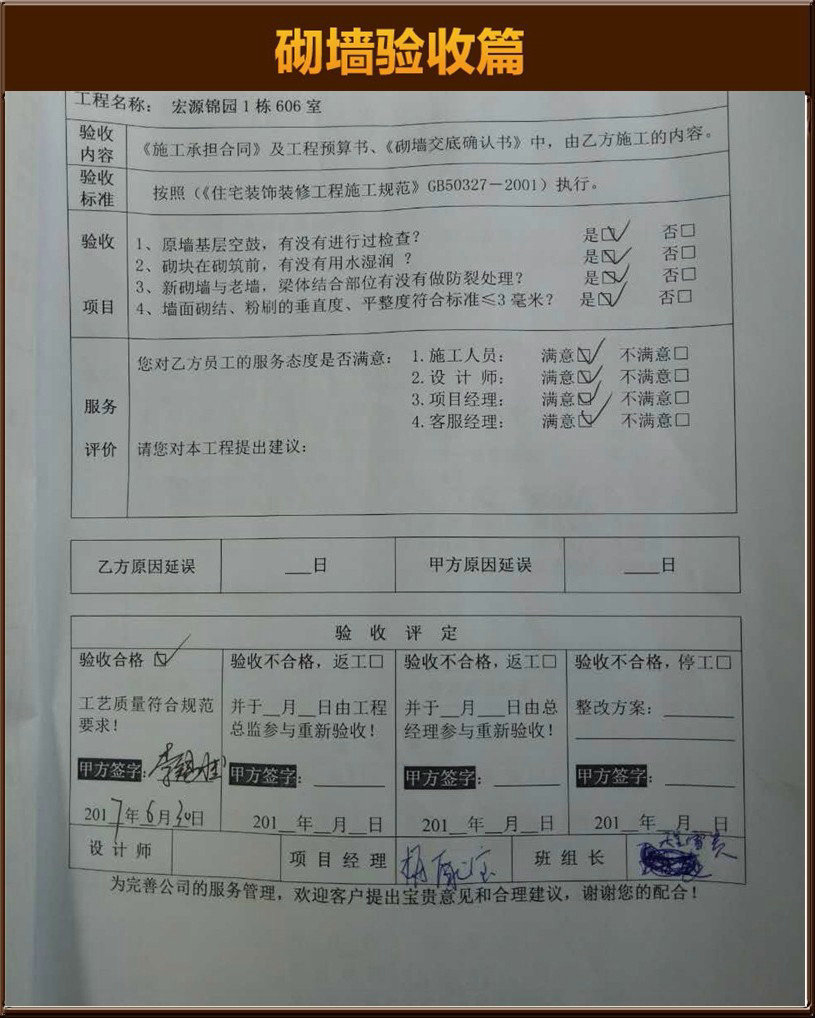 砌墙验收篇
工程名称： 宏源锦园1栋606室
验收内容 《施工承担合同》及工程预算书、《砌墙交底确认书》中，由乙方施工的内容。
验收标准 按照（《住宅装饰装修工程施工规范》GB50327－2001）执行。
验收项目
1、原墙基层空鼓，有没有进行过检查？ 是☑ 否□
2、砌块在砌筑前，有没有用水湿润 ？ 是☑ 否□
3、新砌墙与老墙，梁体结合部位有没有做防裂处理？ 是☑ 否□
4、墙面砌结、粉刷的垂直度、平整度符合标准≤3毫米？ 是☑ 否□
服务评价
您对乙方员工的服务态度是否满意： 1.施工人员： 满意☑ 不满意□
2.设 计 师： 满意☑ 不满意□
3.项目经理： 满意☑ 不满意□
4.客服经理： 满意☑ 不满意□
请您对本工程提出建议：
乙方原因延误 ___日 甲方原因延误 ___日
验 收 评 定
验收合格 ☑ 验收不合格，返工□ 验收不合格，返工□ 验收不合格，停工□
工艺质量符合规范 并于__月__日由工程 并于__月___日由总 整改方案：______
要求！ 总监参与重新验收！ 经理参与重新验收！
甲方签字： 甲方签字：______ 甲方签字：______ 甲方签字：______
2017年6月30日 201__年__月__日 201__年__月__日 201__年__月__日
设计师 项目经理 班组长
为完善公司的服务管理，欢迎客户提出宝贵意见和合理建议，谢谢您的配合！